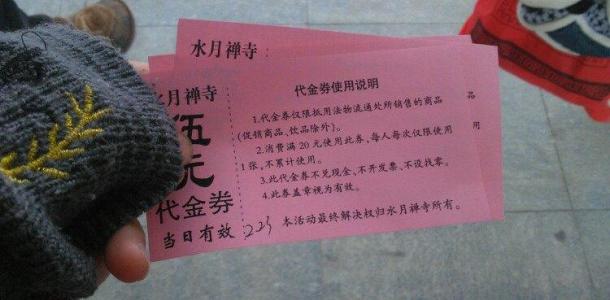 水月禅寺
水月禅寺
伍
元
代金券
当日有效
代金券使用说明
1.代金券仅限抵用法物流通处所销售的商品
(促销商品、饮品除外)。
2.消费满 20 元使用此券,每人每次仅限使用
1 张,不累计使用。
3.此代金券不兑现金、不开发票、不设找零。
4.此券盖章视为有效。
本活动最终解决权归水月禅寺所有。
品
用